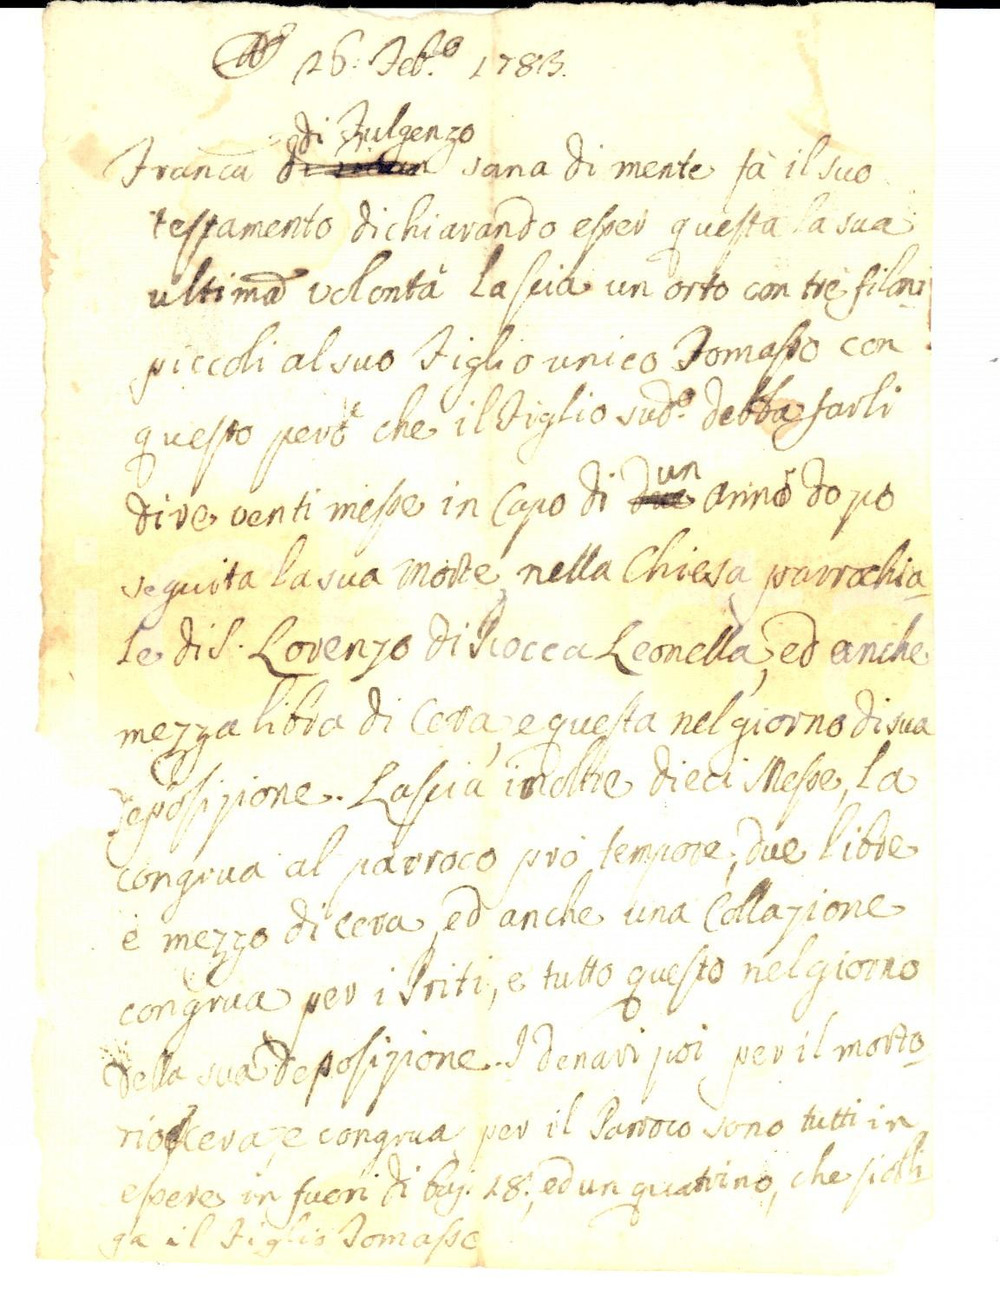 Adì 26: Feb.º 1783.
di Fulgenzo
Franca di sana di mente fà il suo
testamento dichiarando esser questa la sua
ultima volontà Lascia un orto con trè filoni
piccoli al suo Figlio unico Tomasso con
questo però che il Figlio sud.º debba farli
dire venti messe in capo di un anno dopo
seguita la sua morte, nella Chiesa parrochia-
le di S. Lorenzo di Rocca Leonella, ed anche
mezza libra di cera, e questa nel giorno di sua
deposizione. Lascia inoltre dieci Messe, la
congrua al parroco prò tempore, due libre
e mezzo di cera, ed anche una Collazione
congrua per i Priti, e tutto questo nel giorno
della sua deposizione. I denari poi per il morto-
rio, cera, e congrua per il Parroco sono tutti in
essere in fuori di baj. 28., ed un quatrino, che si obli
ga il Figlio Tomasso